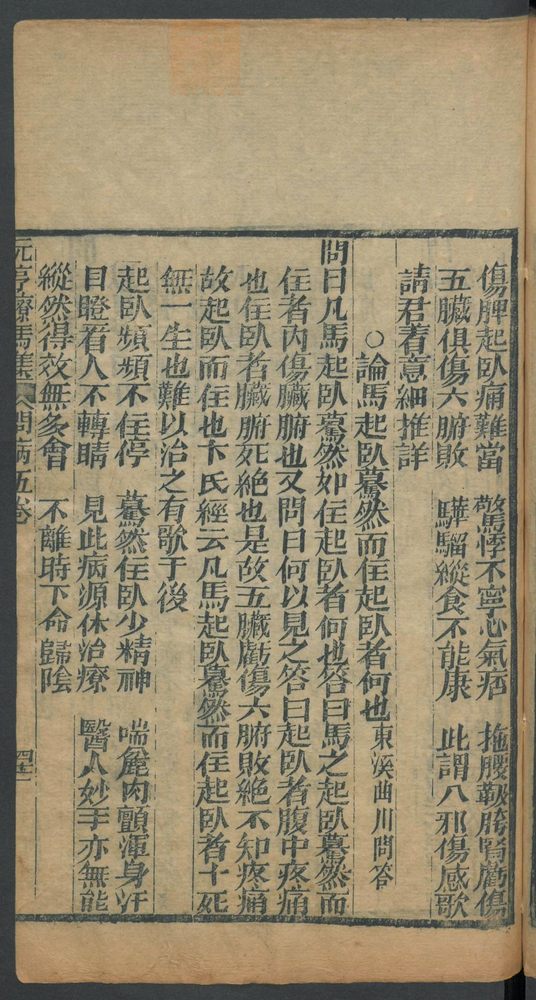 傷脾起卧痛難當　驚悸不寧心氣痛　拖腰靸胯腎虧傷
五臟俱傷六腑敗　驊騮縱食不能康　此謂八邪傷感歌
請君着意細推詳
○論馬起卧驀然而住起卧者何也 東溪曲川問答
問曰凡馬起卧驀然如住起卧者何也答曰馬之起卧驀然而
住者内傷臟腑也又問曰何以見之答曰起卧者腹中疼痛
也住卧者臟腑死絶也是故五臟虧傷六腑敗絶不知疼痛
故起卧而住也卞氏經云凡馬起卧驀然而住起卧者十死
無一生也難以治之有歌于後
起卧頻頻不住停　驀然住卧少精神　喘麄肉顫渾身汗
目瞪看人不轉睛　見此病源休治療　醫人妙手亦無能
縱然得效無多會　不離時下命歸陰
元亨療馬集 八問病五卷